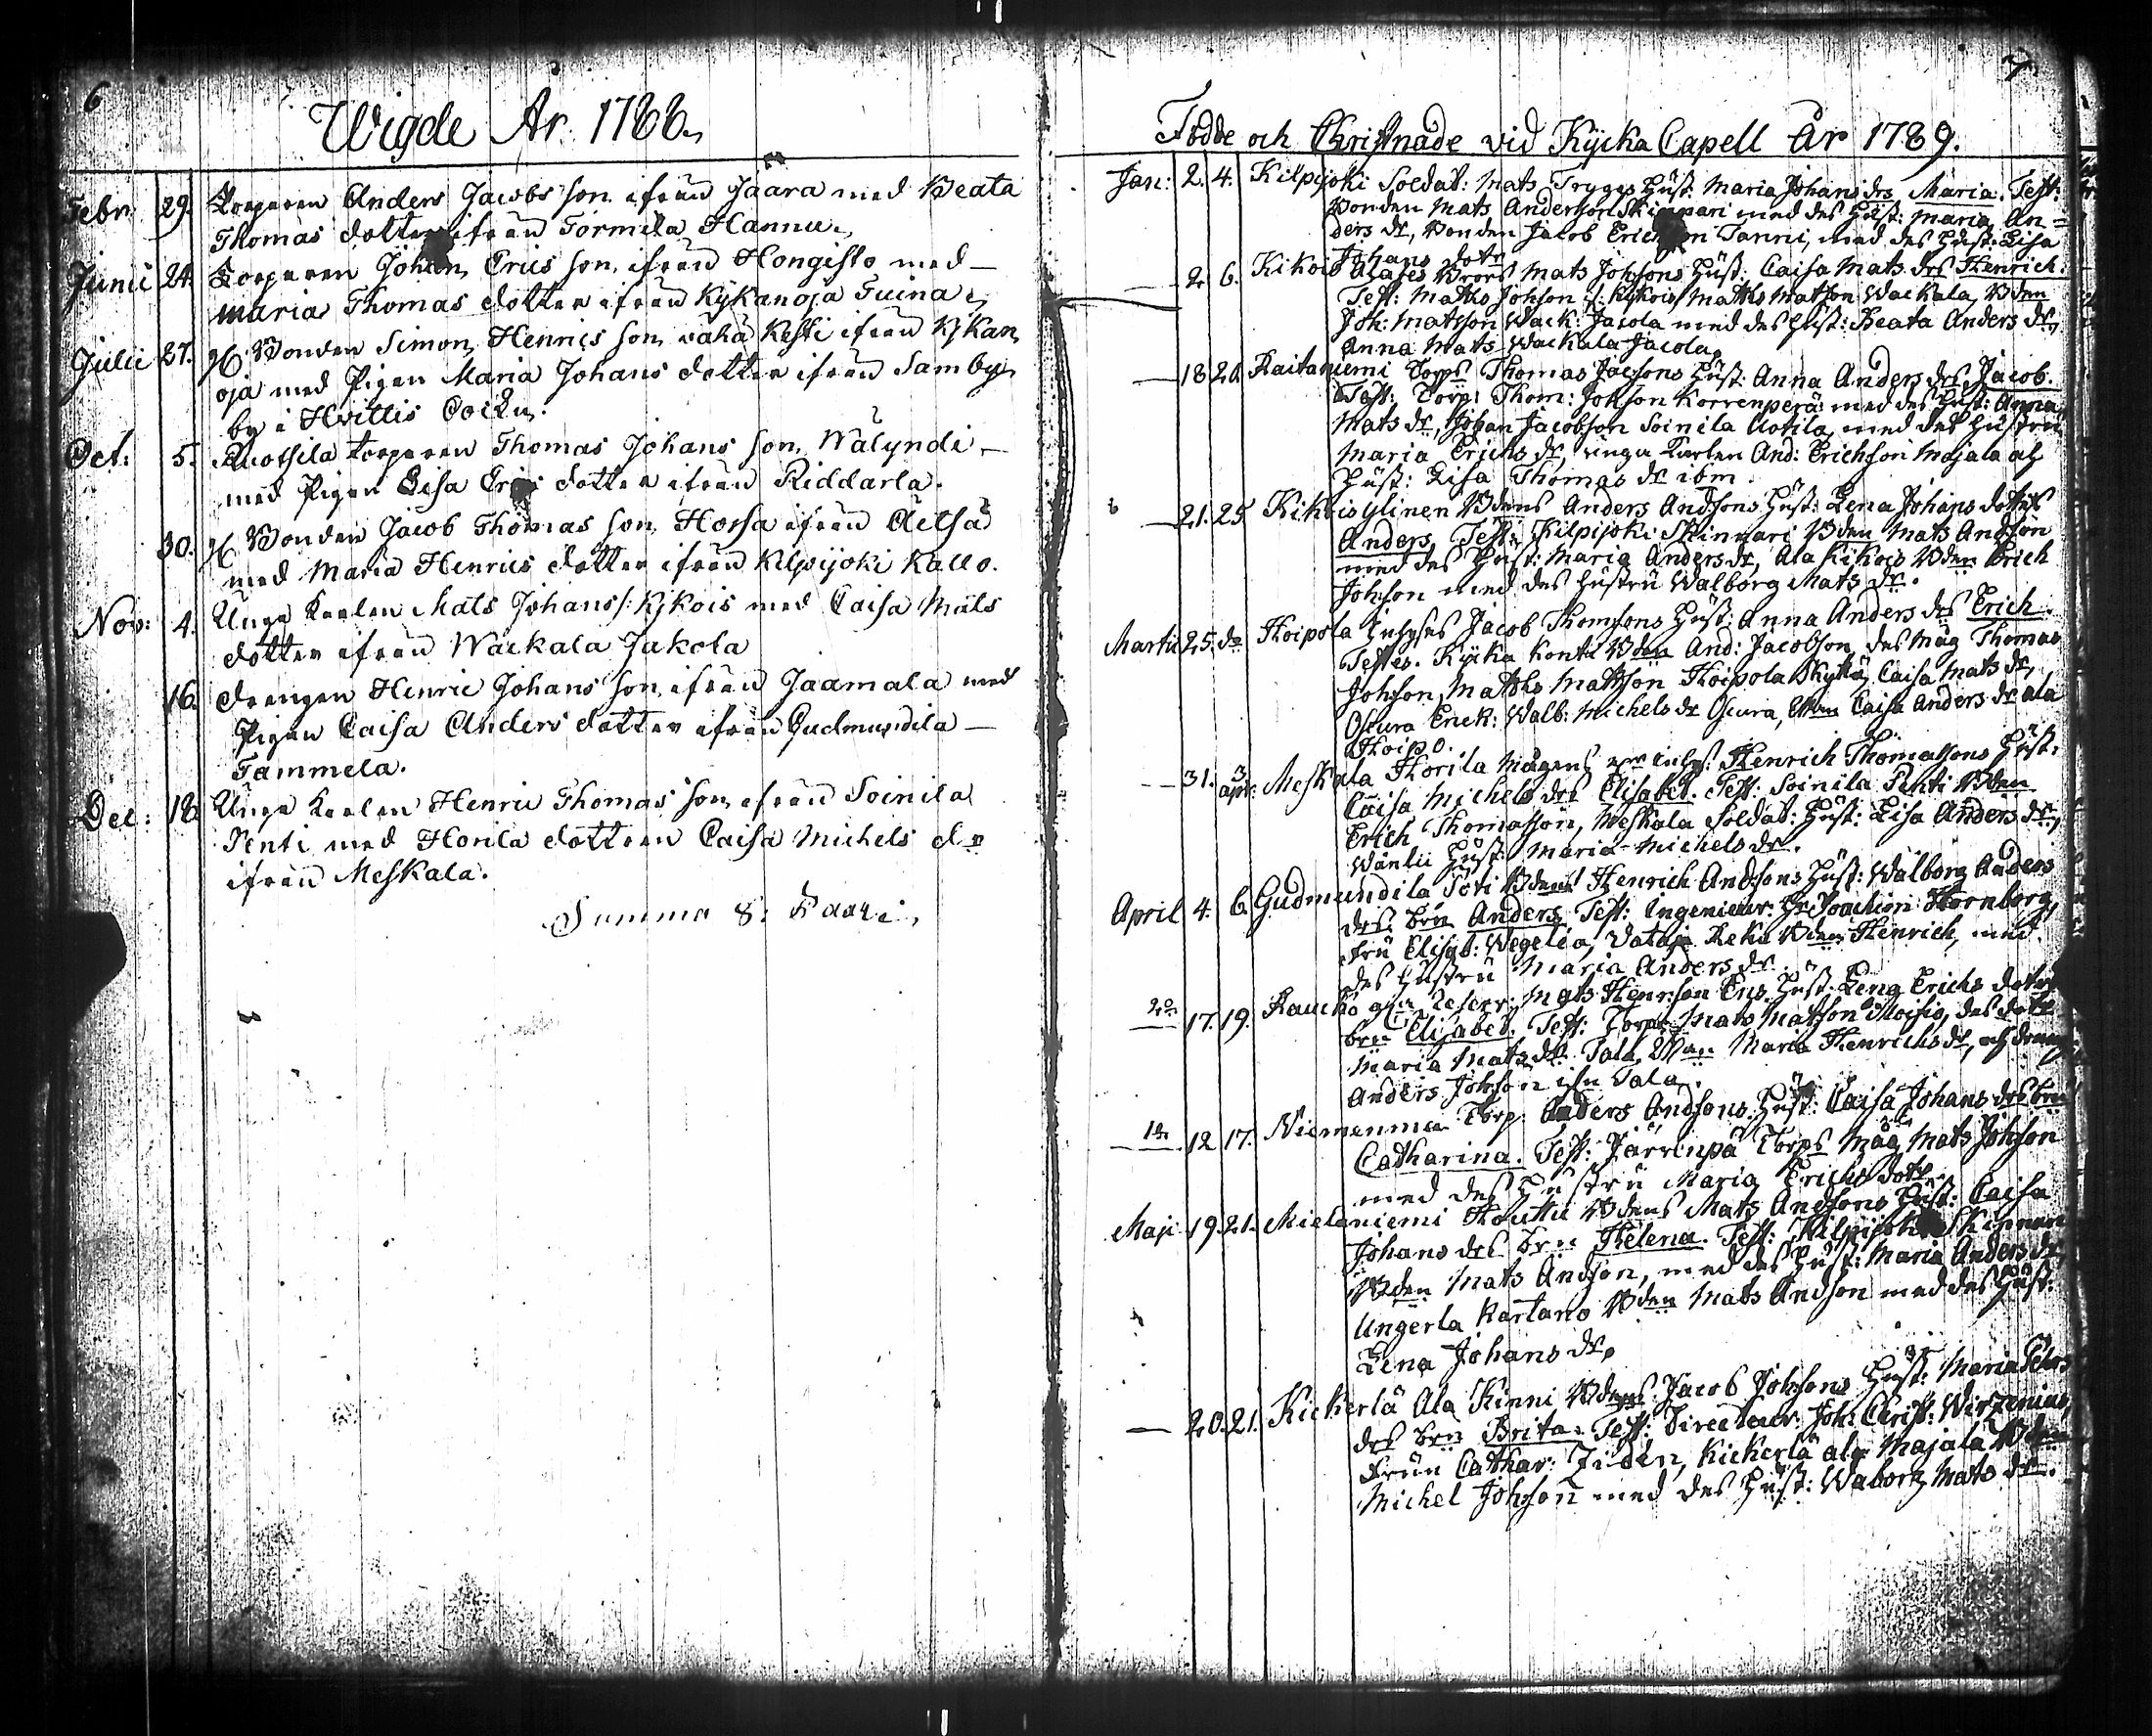 6
Wigde År 1788.
Febr. 29. Torparen Anders Jacobs son ifrån Jaara med Beata
Thomas dotter ifrån Tormila Hannu.
Junii 24. Torparen Johan Erics son ifrån Hongisto med
Maria Thomas dotter ifrån Kykänoja Tuina.
Julii 27. Bonden Simon Henrics son vähä Kesti ifrån Kykän
oja med Pigan Maria Johans dotter ifrån Samby
by i Hvittis Sockn.
Oct: 5. torparen Thomas Johans son Wälyndi
med Pigan Lisa Erics dotter ifrån Riddarla.
30. Bonden Jacob Thomas son Horsa ifrån Äetsä
med Maria Henrics dotter ifrån Kilpijoki Kallo.
Nov: 4. Unga Karlen Mats Johanss: Kykois med Caisa Mats
dotter ifrån Wackala Jakola
16. drengen Henric Johans son ifrån Jaamala med
Pigan Caisa Anders dotter ifrån Gudmundila
Tammela.
Dec: 18. Unga Karlen Henric Thomas son ifrån Soinila
Penti med Horila dottren Caisa Michels dr
ifrån Meskala.
Summa 8. Paar.
7
Födde och Christnade vid Kjicka Capell År 1789.
Jan: 2. 4. Kilpijoki Soldat: Mats Tryggs Hust: Maria Johans drs Maria. Test:
Bonden Mats Anderson Skinnari med des Hust: Maria An-
ders dr, Bonden Jacob Erichson Tanni, med des Hust: Lisa
Johans dotr
2. 6. Kikois Alafes Brors Mats Johsons Hust: Caisa Mats drs Henrich.
Test: Matths Johson Kykois, Matths Matson Wackala, Bden
Joh: Matsson Wack: Jacola med des Hust: Beata Anders dr,
Anna Mats Wackala Jacola.
18 20. Raitaniemi Torps Thomas Jacsons Hust: Anna Anders drs Jacob.
Test: Torp: Thom: Johson Korrenperä med des Hust: Anna
Mats dr, Johan Jacobson Soinila Aotila, med des Hustru
Maria Erichs dr, unga Karlen And: Erichson Majala och
Hust: Lisa Thomas dr ibm.
21. 25 Kikois ylinen Bdens Anders Andsons Hust: Lena Johans dotrs
Anders Test: Kilpijoki Skinnari Bden Mats Andson
med des Hust: Maria Anders dr, Ala Kikois Bden Erich
Johson med des Hustru Walborg Mats dr.
Martii 25. do Hoipola Inhyses Jacob Thomsons Hust: Anna Anders drs Erich.
Testes. Kjicka Konti Bden And: Jacobson, des Måg Thomas
Johson, Matths Mattson Hoipola Skyttä, Caisa Mats dr,
Osura Erick: Walb: Michels dr Osura, Caisa Anders dr ala
Hoipo.
31. 3 apr. Meskala Horila Mågens Henrich Thomassons Hust:
Caisa Michels drs Elisabet. Test: Soinila Penti Bden
Erich Thomasson, Meskala Soldat: Hust: Lisa Anders dr,
Wänlii Hust: Maria Michels dr.
April 4. 6. Gudmundila Soti Bdens Henrich Andsons Hust: Walborg Anders
drs brn Anders Test: Ingenieur: Hr Joachim Hornborg,
fru Elisab: Wegelia, Bden Henrich, med
des Hustru Maria Anders dr.
17. 19. Mats Henrson Ens Hust: Lena Erichs dotrs
brn Elisabet. Test: Torp: Mats Matson Moisio, des dotr
Maria Mats dr Tala, Maria Henrichs dr, och dreng
Anders Johson ifn Tala.
12 17. Niemenmaa Torp: Anders Andsons Hust: Caisa Johans drs brn
Catharina. Test: Järvinpä Torps Måg Mats Johson
med des Hustru Maria Erichs dotr.
Maji 19. 21. Mielaniemi Houttu Bdens Mats Andsons Hust: Caisa
Johans drs brn Helena. Test: Kilpijoki Skinnari
Bden Mats Andson, med des Hust: Maria Anders dr,
Ungerla Kartano Bden Mats Andson med des Hust:
Lena Johans dr.
20. 21. Kickerlä Ala Kinni Bdens Jacob Johsons Hust: Maria Pehrs
drs brn Brita. Test: Directeur Joh: Christ: Wirzenius,
Frun Cathar: Zidén, Kickerlä ala Majala Bden
Michel Johson med des Hust: Waborg Mats dr.